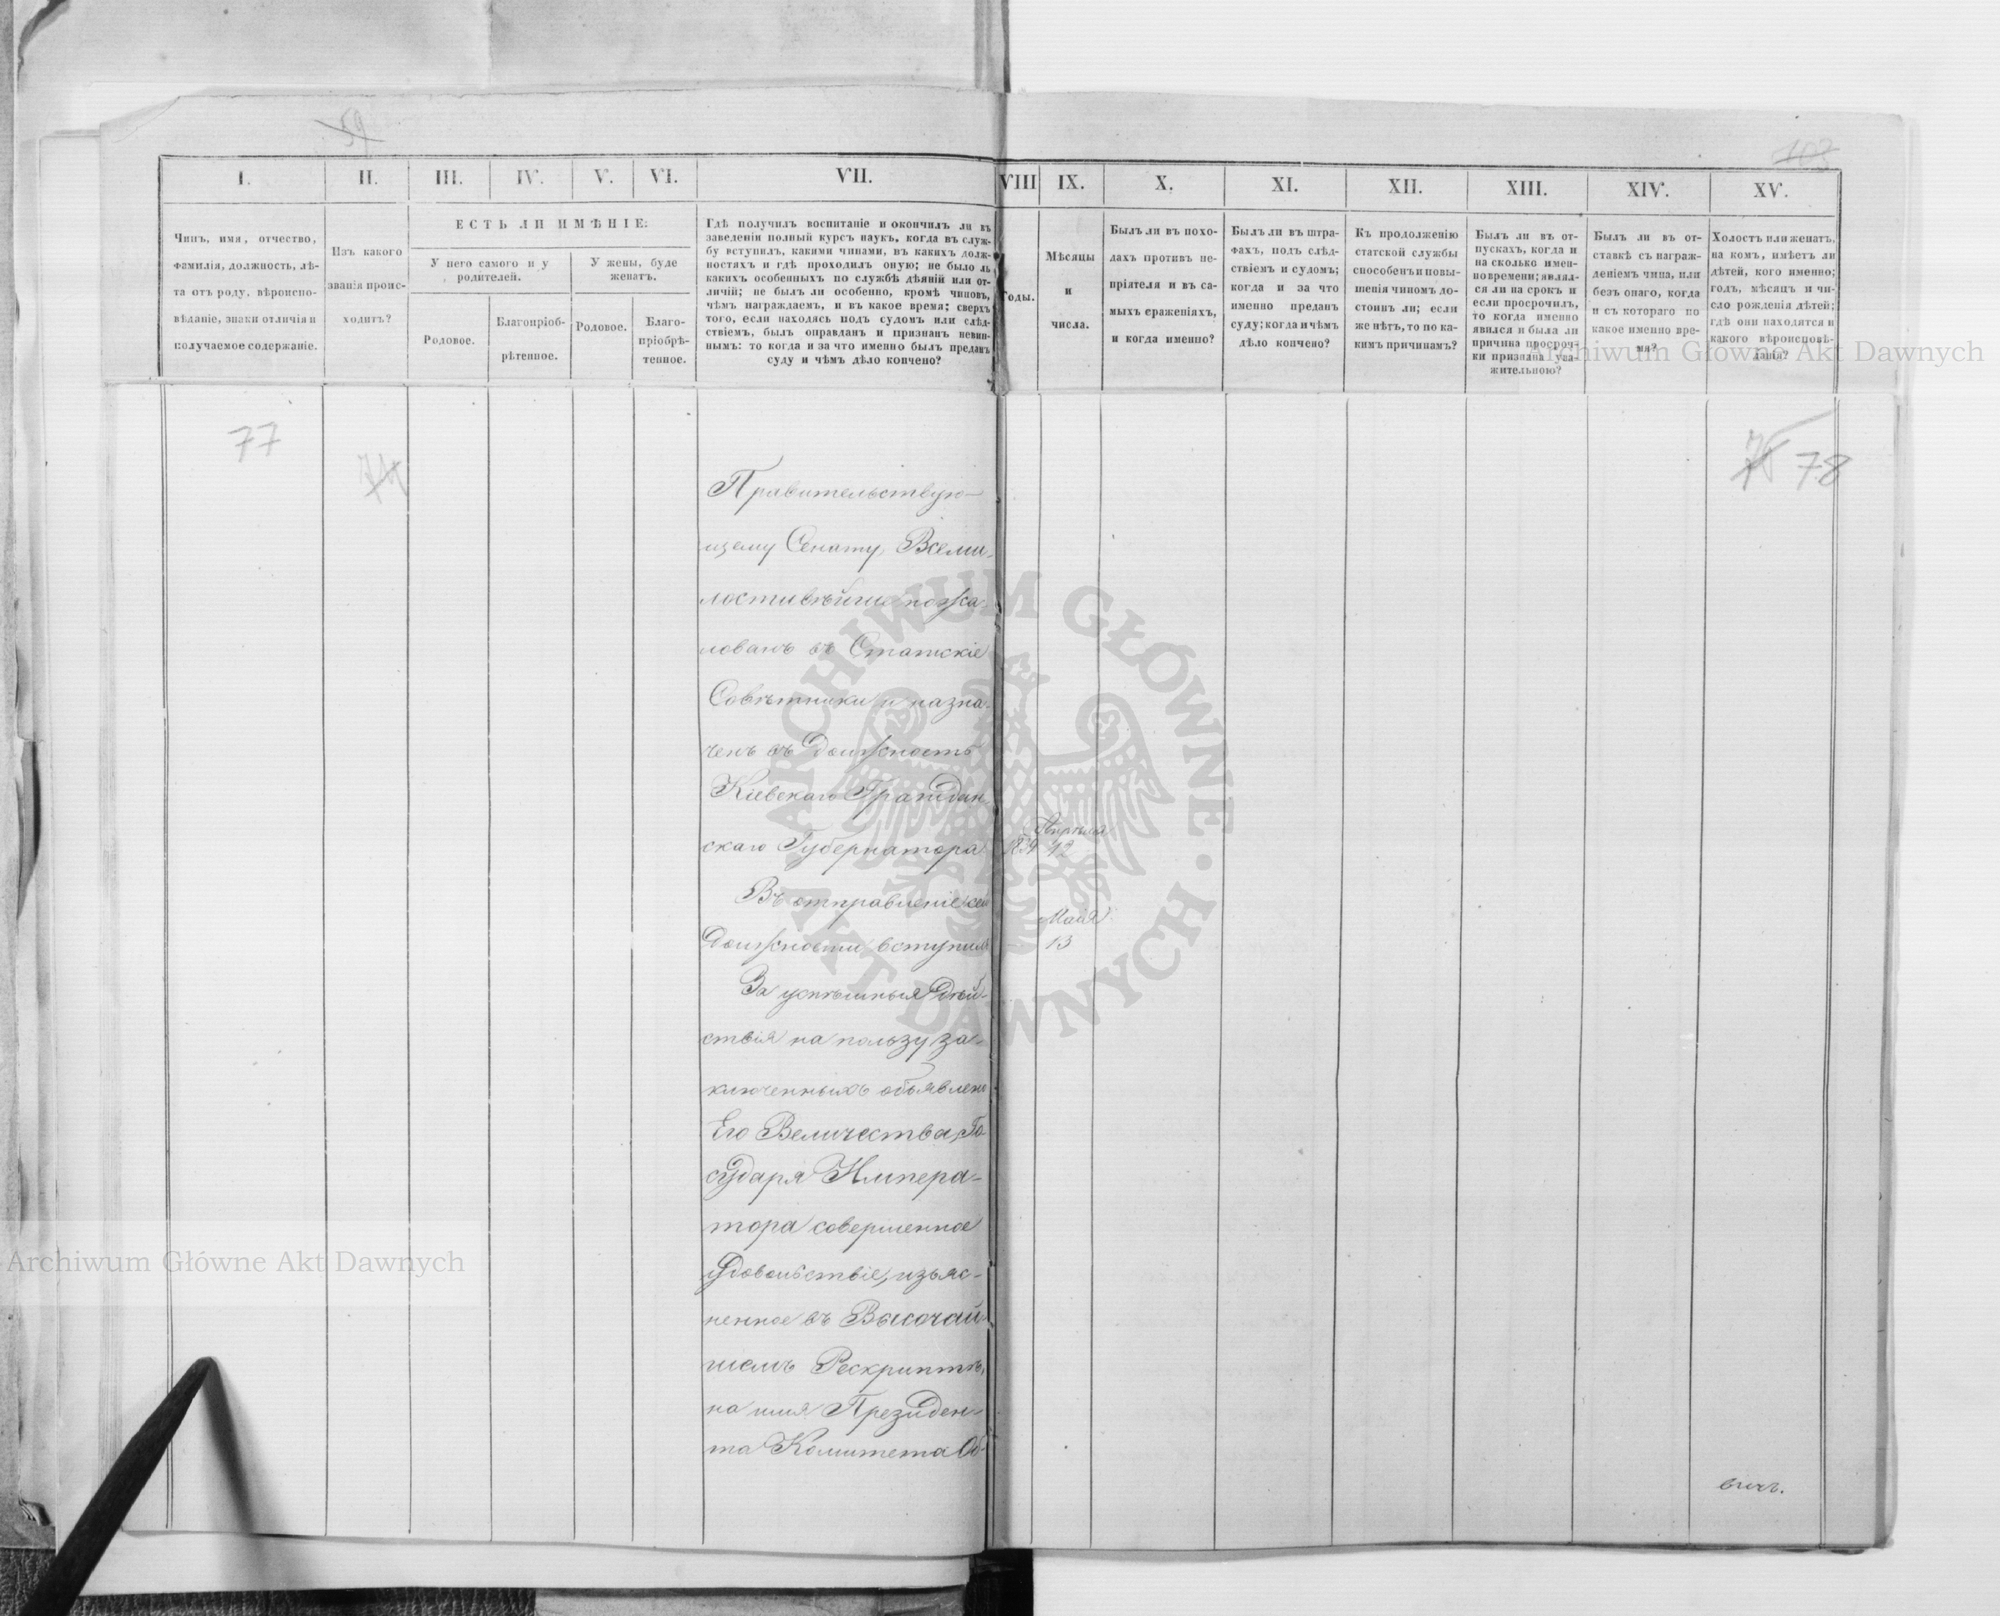 59
103
I.
II.
III.
IV.
V.
VI.
VII.
VIII
IX.
X.
XI.
XII.
XIII.
XIV.
XV.
Чинъ, имя, отчество,
фамилія, должность, лѣ-
та отъ роду, вѣроиспо-
вѣданіе, знаки отличія и
получаемое содержаніе.
Изъ какого
званія проис-
ходитъ?
ЕСТЬ ЛИ ИМѢНІЕ:
У него самого и у
родителей.
У жены, буде
женатъ.
Родовое.
Благопріоб-
рѣтенное.
Родовое.
Благо-
пріобрѣ-
тенное.
Гдѣ получилъ воспитаніе и окончилъ ли въ
заведеніи полный курсъ наукъ, когда въ служ-
бу вступилъ, какими чинами, въ какихъ долж-
ностяхъ и гдѣ проходилъ оную; не было ль
какихъ особенныхъ по службѣ дѣяній или от-
личій; не былъ ли особенно, кромѣ чиновъ,
чѣмъ награждаемъ, и въ какое время; сверхъ
того, если находясь подъ судомъ или слѣд-
ствіемъ, былъ оправданъ и признанъ невин-
нымъ: то когда и за что именно былъ преданъ
суду и чѣмъ дѣло кончено?
Годы.
Мѣсяцы
и
числа.
Былъ ли въ похо-
дахъ противъ не-
пріятеля и въ са-
мыхъ сраженіяхъ,
и когда именно?
Былъ ли въ штра-
фахъ, подъ слѣд-
ствіемъ и судомъ;
когда и за что
именно преданъ
суду; когда и чѣмъ
дѣло кончено?
Къ продолженію
статской службы
способенъ и повы-
шенія чиномъ до-
стоинъ ли; если
же нѣтъ, то по ка-
кимъ причинамъ?
Былъ ли въ от-
пускахъ, когда и
на сколько имен-
но времени; являл-
ся ли на срокъ и
если просрочилъ,
то когда именно
явился и была ли
причина просроч-
ки признана ува-
жительною?
Былъ ли въ от-
ставкѣ съ награж-
деніемъ чина, или
безъ онаго, когда
и съ котораго по
какое именно вре-
мя?
Холостъ или женатъ,
на комъ, имѣетъ ли
дѣтей, кого именно;
годъ, мѣсяцъ и чи-
сло рожденія дѣтей;
гдѣ они находятся и
какого вѣроисповѣ-
данія?
77
78
Правительствую-
щему Сенату, Всеми-
лостивѣйше пожа-
лованъ въ Статскіе
Совѣтники и назна-
ченъ въ Должность
Кіевскаго Граждан-
скаго Губернатора
1839 Апрѣля 12
Въ отправленіе сей
Должности вступилъ
— Маія 13
За успѣшныя дѣй-
ствія на пользу за-
ключенныхъ объявлено
Его Величества Го-
сударя Импера-
тора совершенное
удовольствіе, изъяс-
ненное въ Высочай-
шемъ Рескриптѣ,
на имя Президен-
та Комитета Об-
вичъ.
Archiwum Główne Akt Dawnych
Archiwum Główne Akt Dawnych
ARCHIWUM GŁÓWNE · AKT DAWNYCH ·